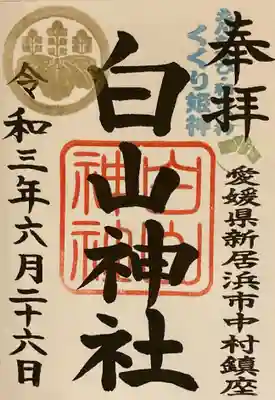 奉拝
くくり姫神
愛媛県新居浜市中村鎮座
白山神社
白山神社
令和三年六月二十六日